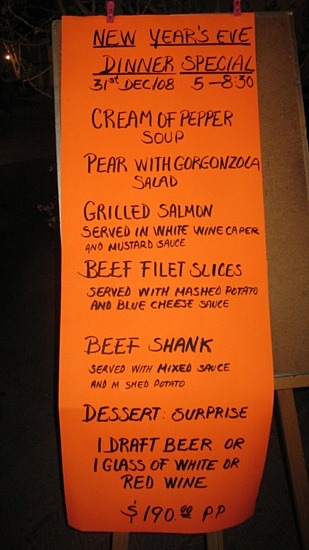 NEW YEAR'S EVE
DINNER SPECIAL
31st DEC/08 5-8:30
CREAM OF PEPPER
SOUP
PEAR WITH GORGONZOLA
SALAD
GRILLED SALMON
SERVED IN WHITE WINE CAPER
AND MUSTARD SAUCE
BEEF FILET SLICES
SERVED WITH MASHED POTATO
AND BLUE CHEESE SAUCE
BEEF SHANK
SERVED WITH MIXED SAUCE
AND M SHED POTATO
DESSERT: SURPRISE
1 DRAFT BEER OR
1 GLASS OF WHITE OR
RED WINE
$190.00 P.P